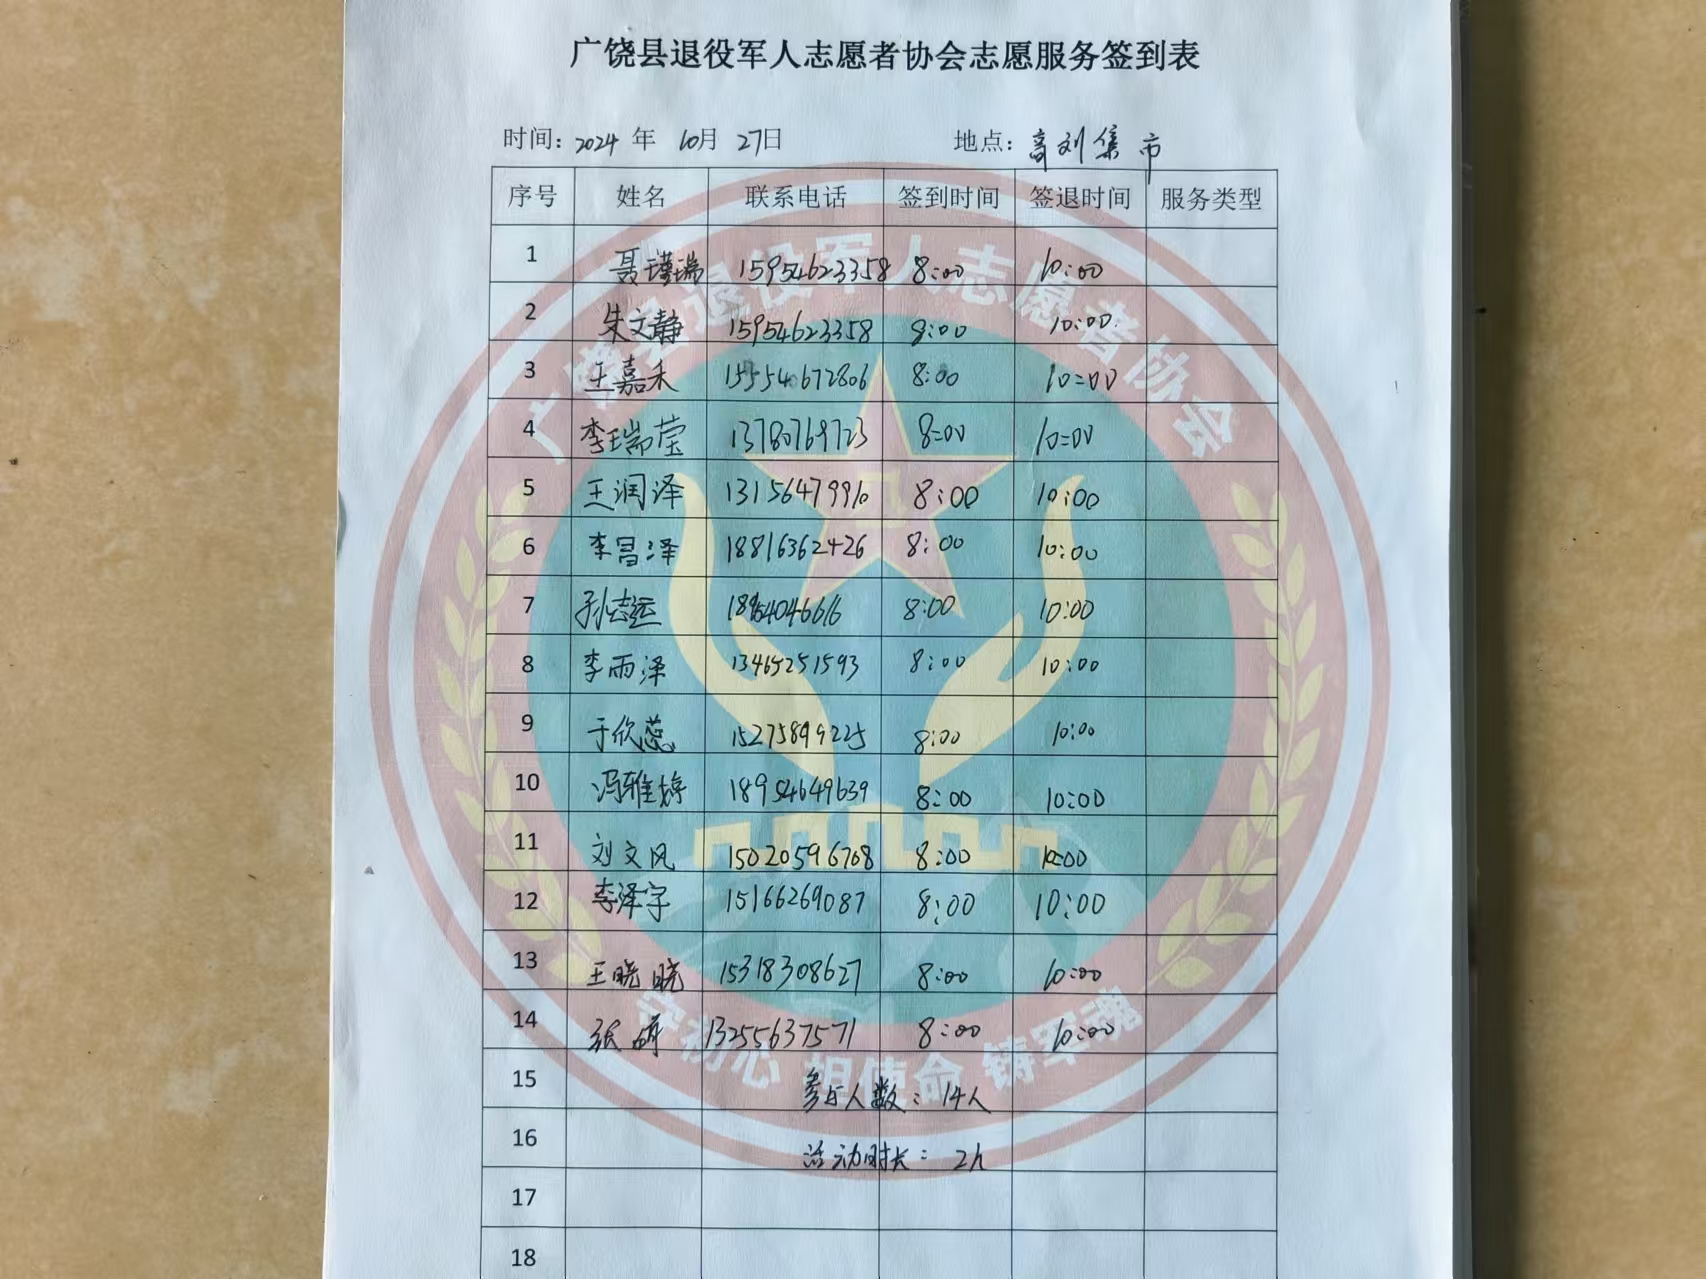 广饶县退役军人志愿者协会志愿服务签到表
时间: 2024 年 10月 27日 地点: 高刘集市
序号 姓名 联系电话 签到时间 签退时间 服务类型
1 聂瑾瑞 15954623358 8:00 10:00
2 朱文静 15954623358 8:00 10:00
3 王嘉禾 15554672806 8:00 10:00
4 李瑞莹 13780769723 8:00 10:00
5 王润泽 13156479910 8:00 10:00
6 李昌泽 18816362426 8:00 10:00
7 孙志运 8:00 10:00
8 李雨泽 13465251593 8:00 10:00
9 于欣蕊 15275899225 8:00 10:00
10 冯雅婷 18954649639 8:00 10:00
11 刘文风 15020596708 8:00 10:00
12 李泽宇 15166269087 8:00 10:00
13 王晓晓 15318308627 8:00 10:00
14 张 13255637571 8:00 10:00
15 参与人数: 14人
16 活动时长: 2h
17
18
广饶县退役军人志愿者协会
守初心 担使命 铸军魂